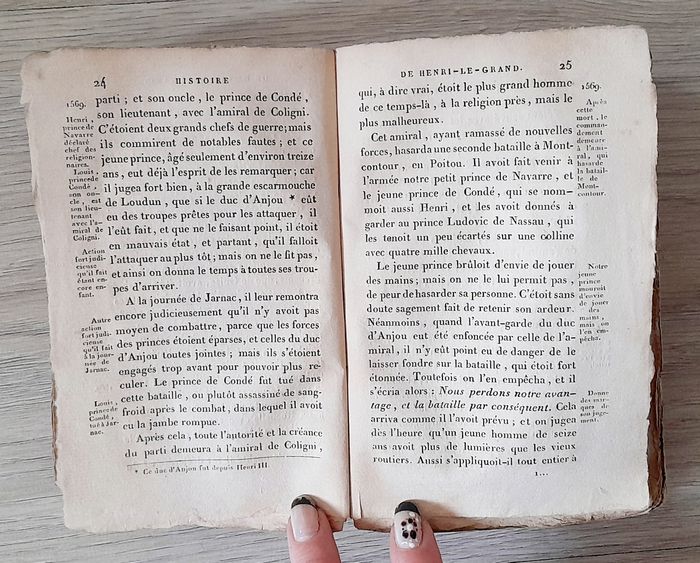 24 HISTOIRE
1569.
Henri, prince de Navarre déclaré chef des religionnaires.
Louis, prince de Condé, son oncle, est son lieutenant avec l'amiral de Coligni.
Action fort judicieuse qu'il fait étant encore enfant.
Autre action fort judicieuse qu'il fait à la journée de Jarnac.
Louis, prince de Condé, tué à Jarnac.
parti ; et son oncle, le prince de Condé,
son lieutenant, avec l'amiral de Coligni.
C'étoient deux grands chefs de guerre; mais
ils commirent de notables fautes; et ce
jeune prince, âgé seulement d'environ treize
ans, eut déjà l'esprit de les remarquer; car
il jugea fort bien, à la grande escarmouche
de Loudun, que si le duc d'Anjou * eût
eu des troupes prêtes pour les attaquer, il
l'eût fait, et que ne le faisant point, il étoit
en mauvais état, et partant, qu'il falloit
l'attaquer au plus tôt; mais on ne le fit pas,
et ainsi on donna le temps à toutes ses trou-
pes d'arriver.
A la journée de Jarnac, il leur remontra
encore judicieusement qu'il n'y avoit pas
moyen de combattre, parce que les forces
des princes étoient éparses, et celles du duc
d'Anjou toutes jointes; mais ils s'étoient
engagés trop avant pour pouvoir plus re-
culer. Le prince de Condé fut tué dans
cette bataille, ou plutôt assassiné de sang-
froid après le combat, dans lequel il avoit
eu la jambe rompue.
Après cela, toute l'autorité et la créance
du parti demeura à l'amiral de Coligni,
* Ce duc d'Anjou fut depuis Henri III.
DE HENRI-LE-GRAND. 25
qui, à dire vrai, étoit le plus grand homme
de ce temps-là, à la religion près, mais le
plus malheureux.
Cet amiral, ayant ramassé de nouvelles
forces, hasarda une seconde bataille à Mont-
contour, en Poitou. Il avoit fait venir à
l'armée notre petit prince de Navarre, et
le jeune prince de Condé, qui se nom-
moit aussi Henri, et les avoit donnés à
garder au prince Ludovic de Nassau, qui
les tenoit un peu écartés sur une colline
avec quatre mille chevaux.
Le jeune prince brûloit d'envie de jouer
des mains; mais on ne le lui permit pas,
de peur de hasarder sa personne. C'étoit sans
doute sagement fait de retenir son ardeur.
Néanmoins, quand l'avant-garde du duc
d'Anjou eut été enfoncée par celle de l'a-
miral, il n'y eût point eu de danger de le
laisser fondre sur la bataille, qui étoit fort
étonnée. Toutefois on l'en empêcha, et il
s'écria alors : Nous perdons notre avan-
tage, et la bataille par conséquent. Cela
arriva comme il l'avoit prévu; et on jugea
dès l'heure qu'un jeune homme de seize
ans avoit plus de lumières que les vieux
routiers. Aussi s'appliquoit-il tout entier à
1...
1569.
Après cette mort, le commandement demeure à l'amiral, qui hasarde la bataille de Montcontour.
Notre jeune prince mouroit d'envie de jouer des mains, mais on l'en empêcha.
Donne des marques de son jugement.